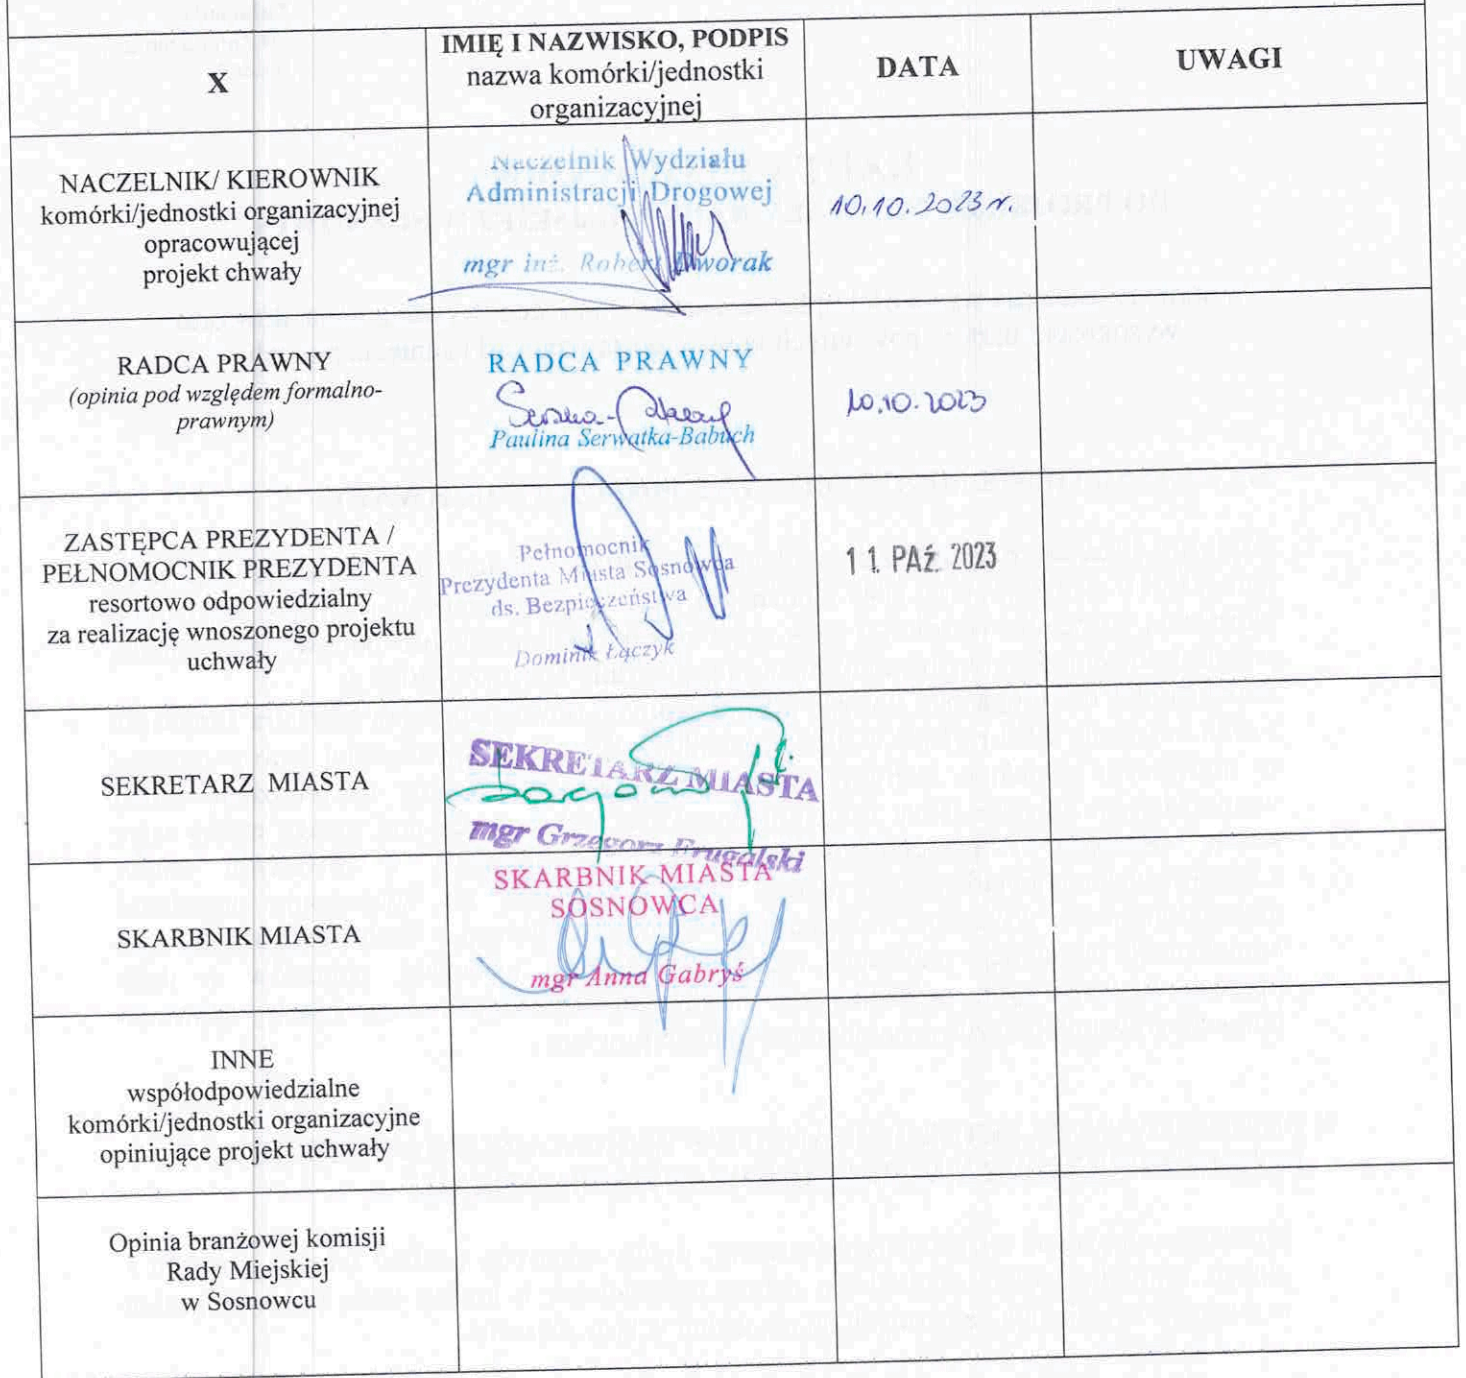 X
IMIĘ I NAZWISKO, PODPIS
nazwa komórki/jednostki
organizacyjnej
DATA
UWAGI
NACZELNIK/ KIEROWNIK
komórki/jednostki organizacyjnej
opracowującej
projekt chwały
Naczelnik Wydziału
Administracji Drogowej
mgr inż. Robert Dworak
10.10.2023 r.
RADCA PRAWNY
(opinia pod względem formalno-
prawnym)
RADCA PRAWNY
Paulina Serwatka-Babuch
10.10.2023
ZASTĘPCA PREZYDENTA /
PEŁNOMOCNIK PREZYDENTA
resortowo odpowiedzialny
za realizację wnoszonego projektu
uchwały
Pełnomocnik
Prezydenta Miasta Sosnowca
ds. Bezpieczeństwa
Dominik Łączyk
11. PAź. 2023
SEKRETARZ MIASTA
SEKRETARZ MIASTA
mgr Grzegorz Frugalski
SKARBNIK MIASTA
SKARBNIK MIASTA
SOSNOWCA
mgr Anna Gabryś
INNE
współodpowiedzialne
komórki/jednostki organizacyjne
opiniujące projekt uchwały
Opinia branżowej komisji
Rady Miejskiej
w Sosnowcu